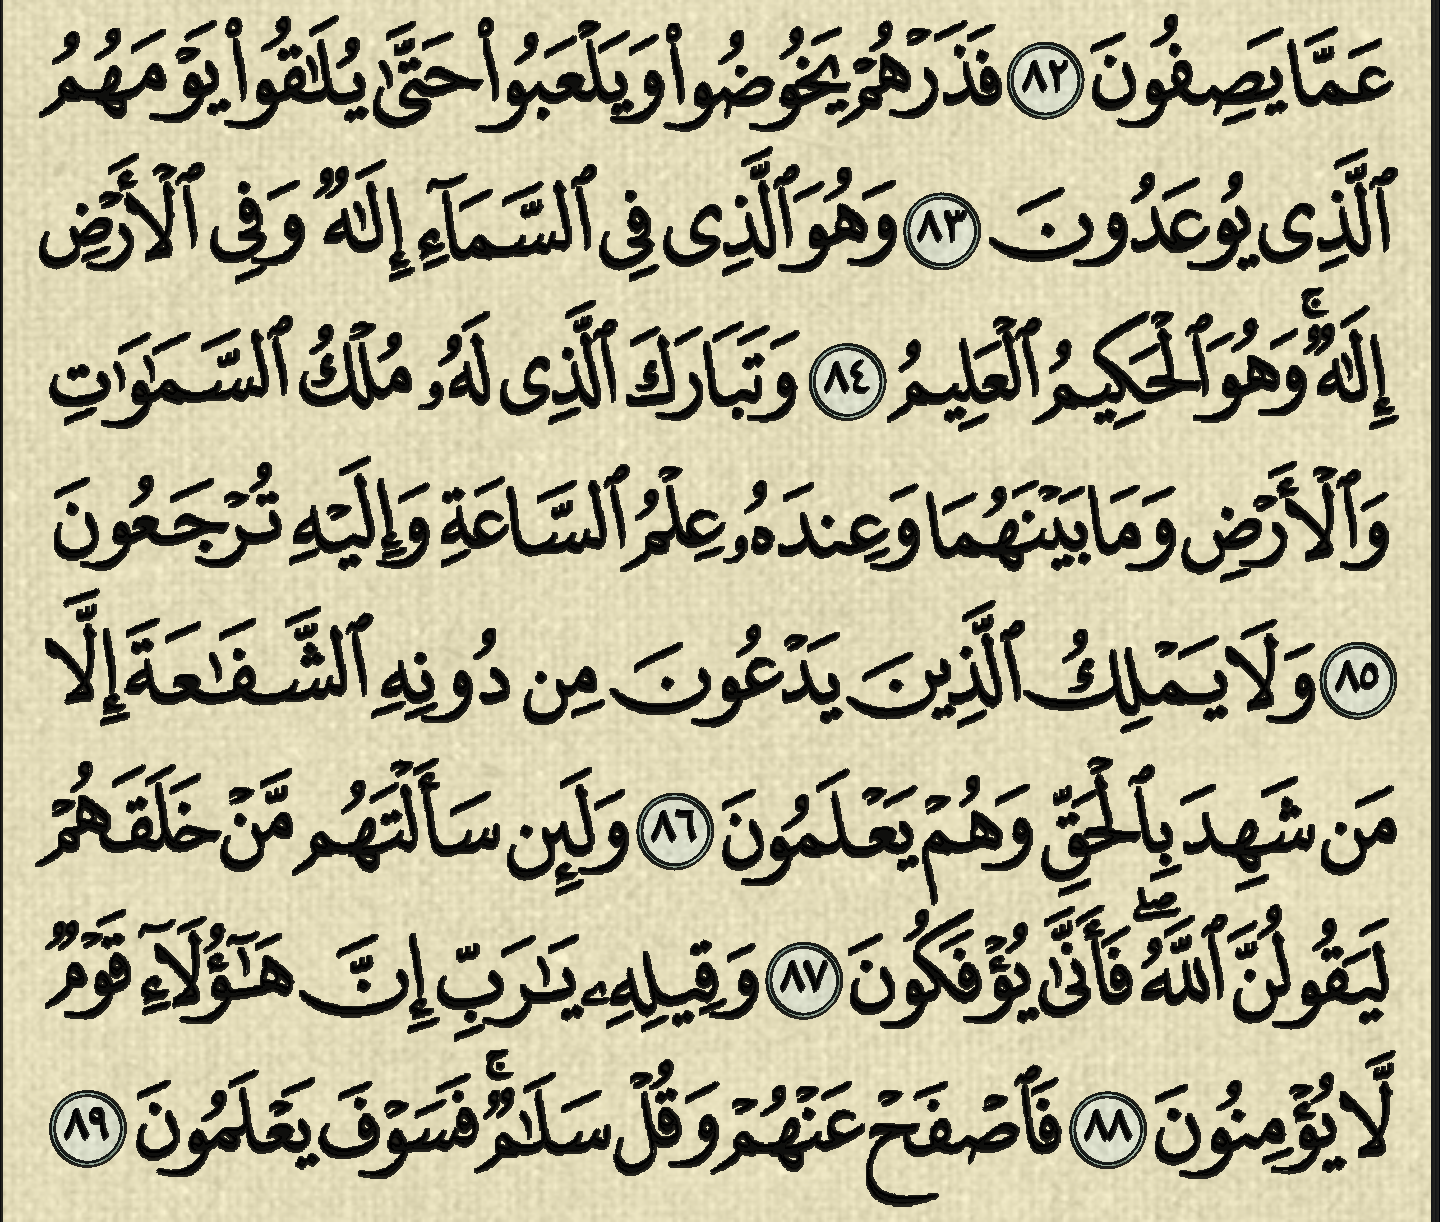 عَمَّا يَصِفُونَ ٨٢ فَذَرۡهُمۡ يَخُوضُواْ وَيَلۡعَبُواْ حَتَّىٰ يُلَٰقُواْ يَوۡمَهُمُ
ٱلَّذِى يُوعَدُونَ ٨٣ وَهُوَ ٱلَّذِى فِى ٱلسَّمَآءِ إِلَٰهٌ وَفِى ٱلۡأَرۡضِ
إِلَٰهٌۚ وَهُوَ ٱلۡحَكِيمُ ٱلۡعَلِيمُ ٨٤ وَتَبَارَكَ ٱلَّذِى لَهُۥ مُلۡكُ ٱلسَّمَٰوَٰتِ
وَٱلۡأَرۡضِ وَمَا بَيۡنَهُمَا وَعِندَهُۥ عِلۡمُ ٱلسَّاعَةِ وَإِلَيۡهِ تُرۡجَعُونَ
٨٥ وَلَا يَمۡلِكُ ٱلَّذِينَ يَدۡعُونَ مِن دُونِهِ ٱلشَّفَٰعَةَ إِلَّا
مَن شَهِدَ بِٱلۡحَقِّ وَهُمۡ يَعۡلَمُونَ ٨٦ وَلَئِن سَأَلۡتَهُم مَّنۡ خَلَقَهُمۡ
لَيَقُولُنَّ ٱللَّهُۖ فَأَنَّىٰ يُؤۡفَكُونَ ٨٧ وَقِيلِهِۦ يَٰرَبِّ إِنَّ هَٰٓؤُلَآءِ قَوۡمٌ
لَّا يُؤۡمِنُونَ ٨٨ فَٱصۡفَحۡ عَنۡهُمۡ وَقُلۡ سَلَٰمٌۚ فَسَوۡفَ يَعۡلَمُونَ ٨٩